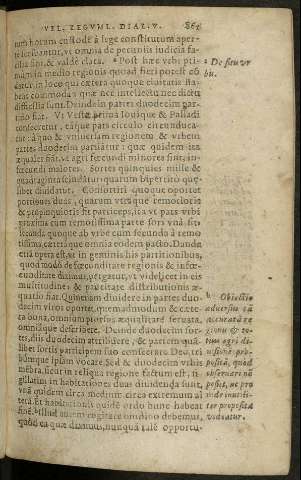 VEL LEGVM. DIAL. V. 865
tum horum custode à lege constitutum aper-
te seruantur, vt omnia de pecuniis iudicia fa-
cilia sint, & valde clara. Post hæc vrbs pri-
mùm in medio regionis quoad fieri potest con
datur, in loco qui cætera quoque ciuitatis ha-
beat commoda: quæ nec intellectu nec dictu
difficilia sunt. Deinde in partes duodecim par-
titio fiat. Vt Vestæ prima Iouique & Palladi
consecretur,
à quo & vniuersam regionem & vrbem
partes duodecim partiatur: quæ quidem ita
æquales fiāt, vt agri fecundi minores sint, in-
fecundi maiores. Sortes quinquies mille &
quadraginta scindātur quarum bipertitò quæ-
libet diuidatur. Consortiri quoque oportet
portiones duas, quarum vtraque remotioris
& propinquioris sit particeps, ita vt pars vrbi
proxima cum remotissima parte sors vna sit:
secunda quoque ab vrbe cum secunda à remo
tissima, cæteráque omnia eodem pacto.
etiā opera est, vt in geminis his partitionibus,
quod modò de fœcunditate regionis & infœ-
cunditate diximus, peragatur, vt videlicet in eis
multitudine & paucitate distributionis æ-
quatio fiat. Quinetiam diuidere in partes duo-
decim viros oportet, quemadmodum & cæte-
ra bona,
omniáque describere. Deinde duodecim sor-
tes, diis duodecim attribuere, & partem quā-
libet sortis participem suo consecrare Deo, tri
búmque ipsam vocare. Sed & duodecim vrbis
membra, sicut in reliqua regione factum est,
gillatim in habitationes duas diuidenda sunt,
vnā quidem circa medium, circa extremum al
terā. Et habitationis quidē ordo hunc habeat
finē. Illud autem cogitare omnino debemus,
quòd ea quæ diximus, nunquā talē opportu-
De situ vr
bu.
Obiectio
aduersus
accuratā re
gionis & to-
tius agri di-
uisionē pro-
positā, quòd
obseruari nō
possit, ac pro
inde inutili-
ter proposita
videatur.